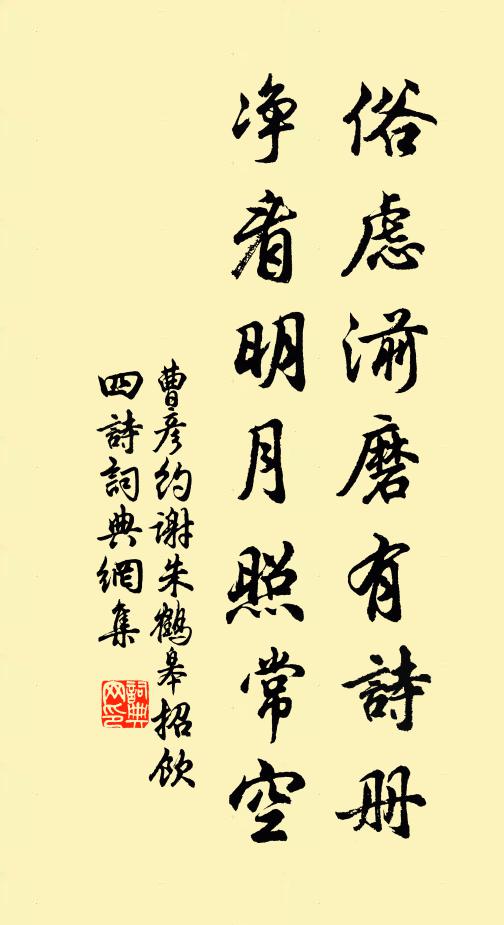 俗慮湔磨有詩册
净看明月照常空
曹彦約謝朱鶴皋招飲
四詩詞典網集
詞典网印